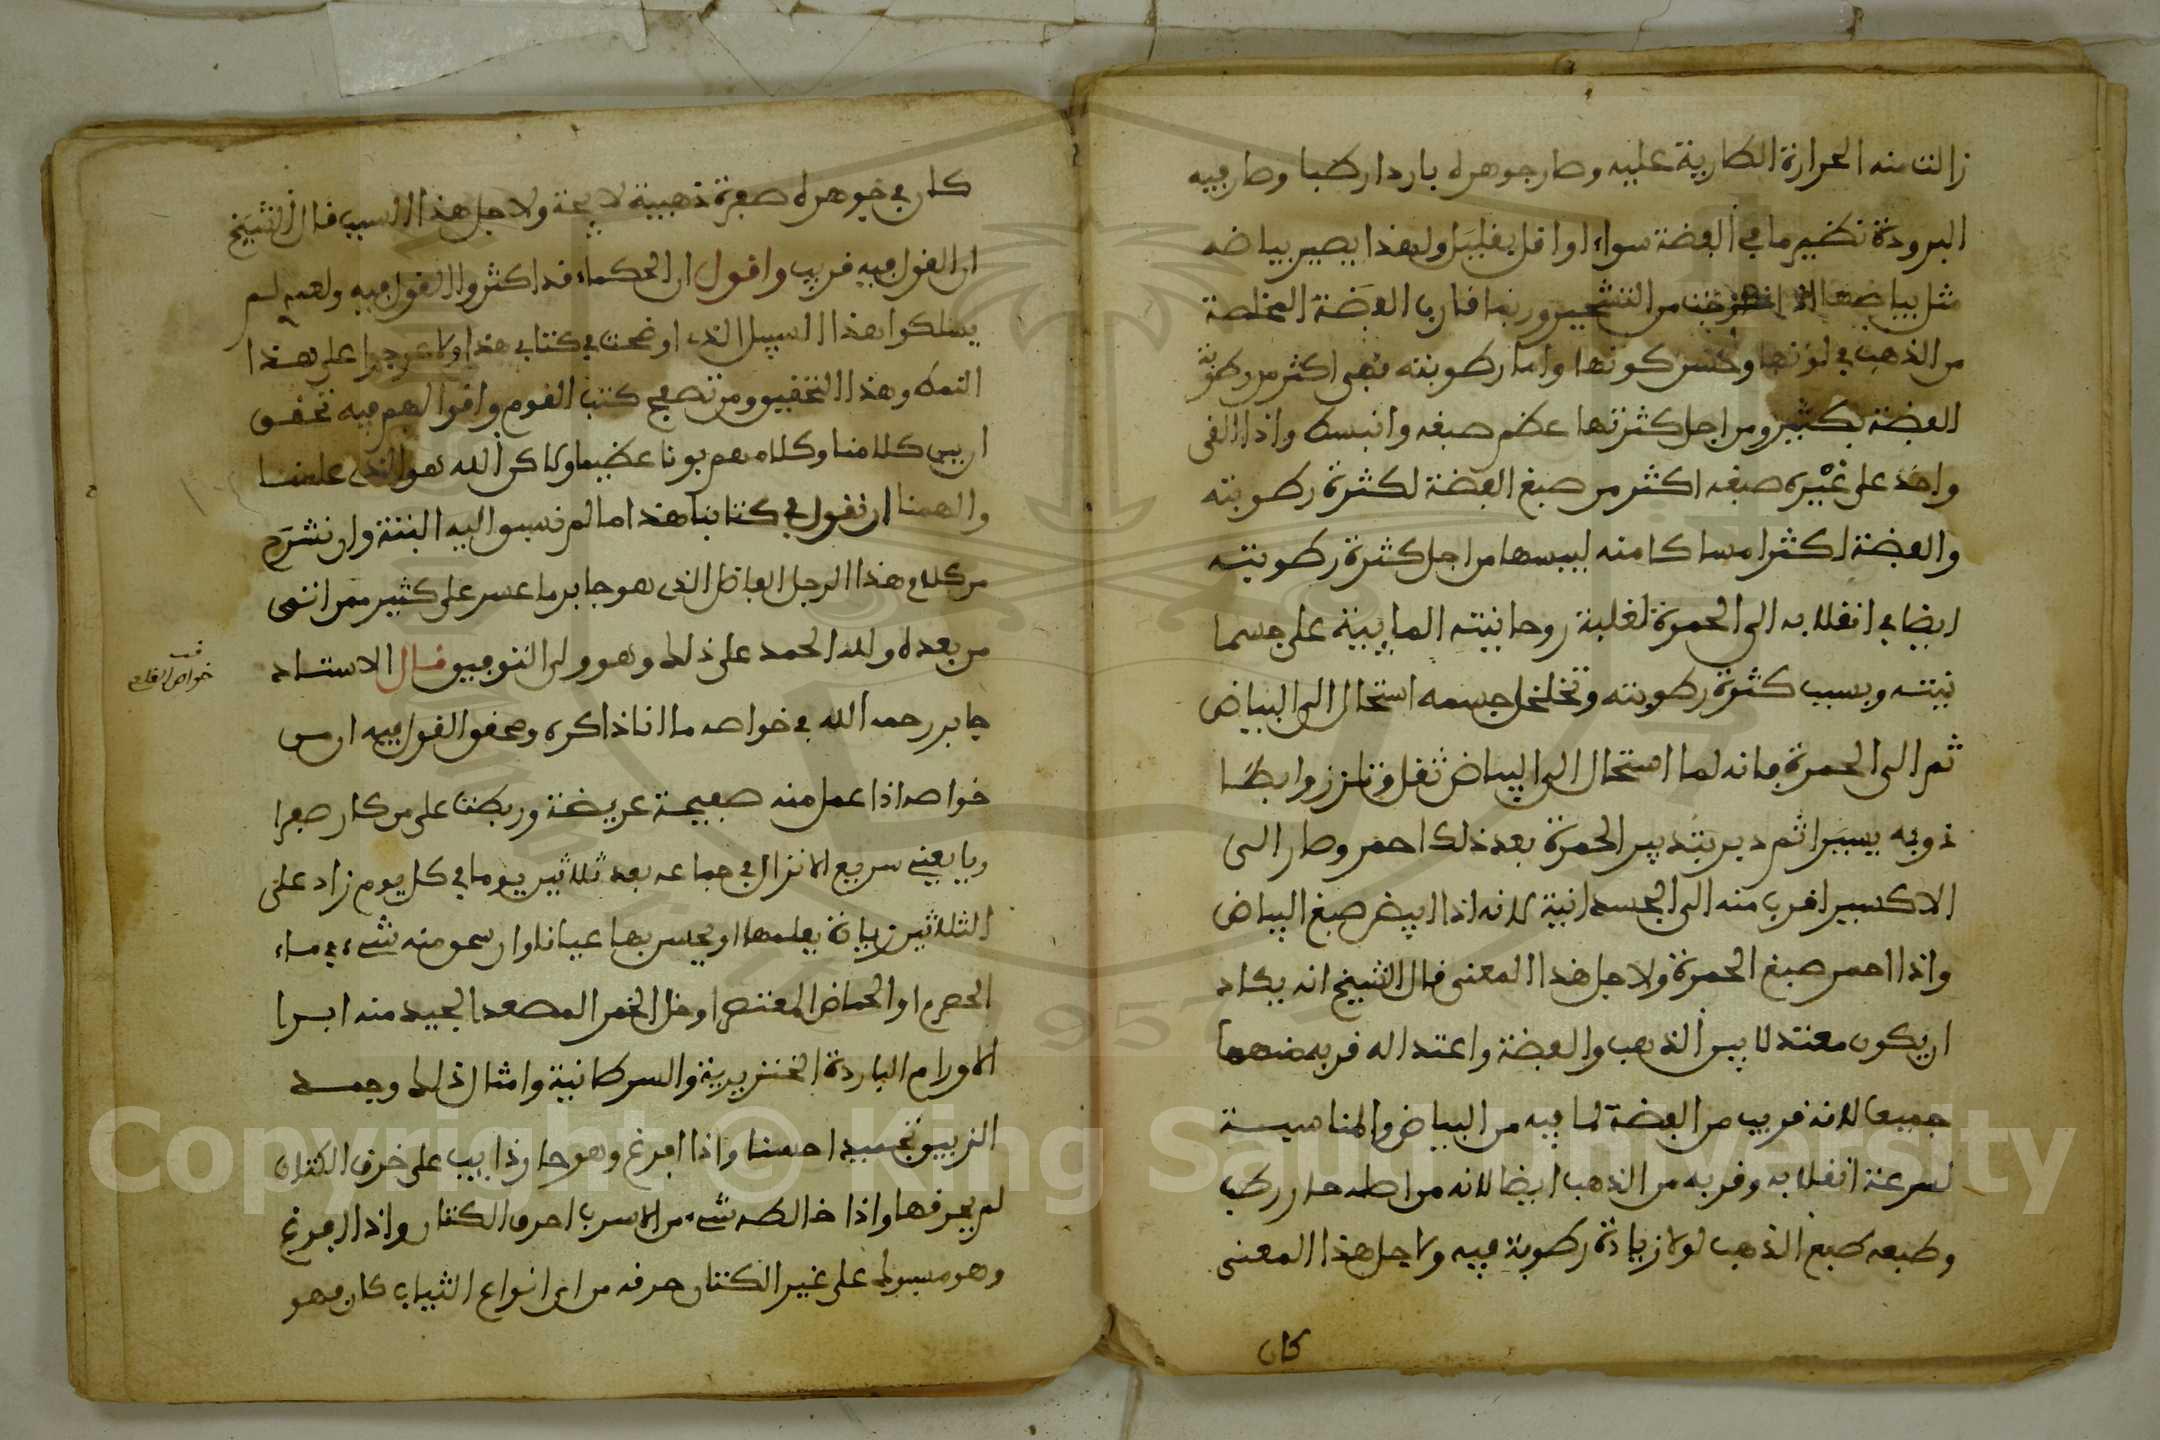 زالت منه الحرارة الطارية عليه وصار جوهره باردا رطبا وصار فيه
البرودة نظير ما في الفضة سواء او اقل بقليل ولهذا يصير بياضه
مثل بياضها من التشحير وربما قارب الفضة المخلصة
من الذهب في لونها وحسن كونها واما رطوبته فهي اكثر من رطوبة
الفضة بكثير ومن اجل كثرتها عظم صبغه وانبسط واذا القي
واخذ على غيره صبغه اكثر من صبغ الفضة لكثرة رطوبته
والفضة اكثر امساكا منه ليبسها من اجل كثرة رطوبته
ايضا في انقلابه الى الحمرة لغلبة روحانيته المايية على جسما
نيته وبسبب كثرة رطوبته وتخلخل جسمه استحال الى البياض
ثم الى الحمرة فانه لما استحال الى البياض ثقل وتلزز وابطا
ذوبه يسيرا ثم دبر بتدبير الحمرة بعد ذلك احمر وصار الى
الاكسير اقرب منه الى الجسدانية لانه اذا ابيض صبغ البياض
واذا احمر صبغ الحمرة ولاجل هذا المعنى قال الشيخ انه يكاد
ان يكون معتدلا بين الذهب والفضة واعتداله قربه منهما
جميعا لانه قريب من الفضة لما فيه من البياض والمناسبة
لسرعة انقلابه وقربه من الذهب ايضا لانه من اصله حار رطب
وطبعه طبع الذهب لولا زيادة رطوبة فيه ولاجل هذا المعنى
كان
كان في جوهره صفرة ذهبية لايحة ولاجل هذا السبب قال الشيخ
ان القول فيه قريب واقول ان الحكماء قد اكثروا القول فيه ولعمري لم
يسلكوا هذا السبيل الذي اوضحت في كتابي هذا ولا عرجوا على هذا
النمط وهذا التحقيق ومن تصفح كتب القوم واقوالهم فيه تحقق
ان بين كلامنا وكلامهم بونا عظيما ولاكن الله هو الذي علمنا
والهمنا ان نقول في كتابنا هذا ما لم نسبق اليه البتة وان نشرح
من كلام هذا الرجل الفاضل الذي هو جابر ما عسر على كثير ممن اتى
من بعده ولله الحمد على ذلك وهو ولي التوفيق قال الاستاد
قف
خواص القلعي
جابر رحمه الله في خواصه ما انا ذاكره ومحقق القول فيه ان من
خواصه اذا عمل منه صفيحة عريضة وربطت على من كان صفرا
ويا يعني سريع الانزال في جماعه بعد ثلاثين يوما في كل يوم زاد على
الثلاثين زيادة يعلمها او يحس بها عيانا وان سحق منه شيء في ماء
الحصرم او الحماض المعتصر او خل الخمر المصعد الجيد منه ابرا
الاورام الباردة الخنزيرية والسرطانية وامثال ذلك وجمد
الزيبق تجميدا حسنا واذا افرغ وهو حار ذايب على خرق الكتان
لم يحرقها واذا خالطه شيء من الاسرب احرق الكتان واذا افرغ
وهو مسبوك على غير الكتان حرقه من اي انواع الثياب كان فهو
Copyright © King Saud University